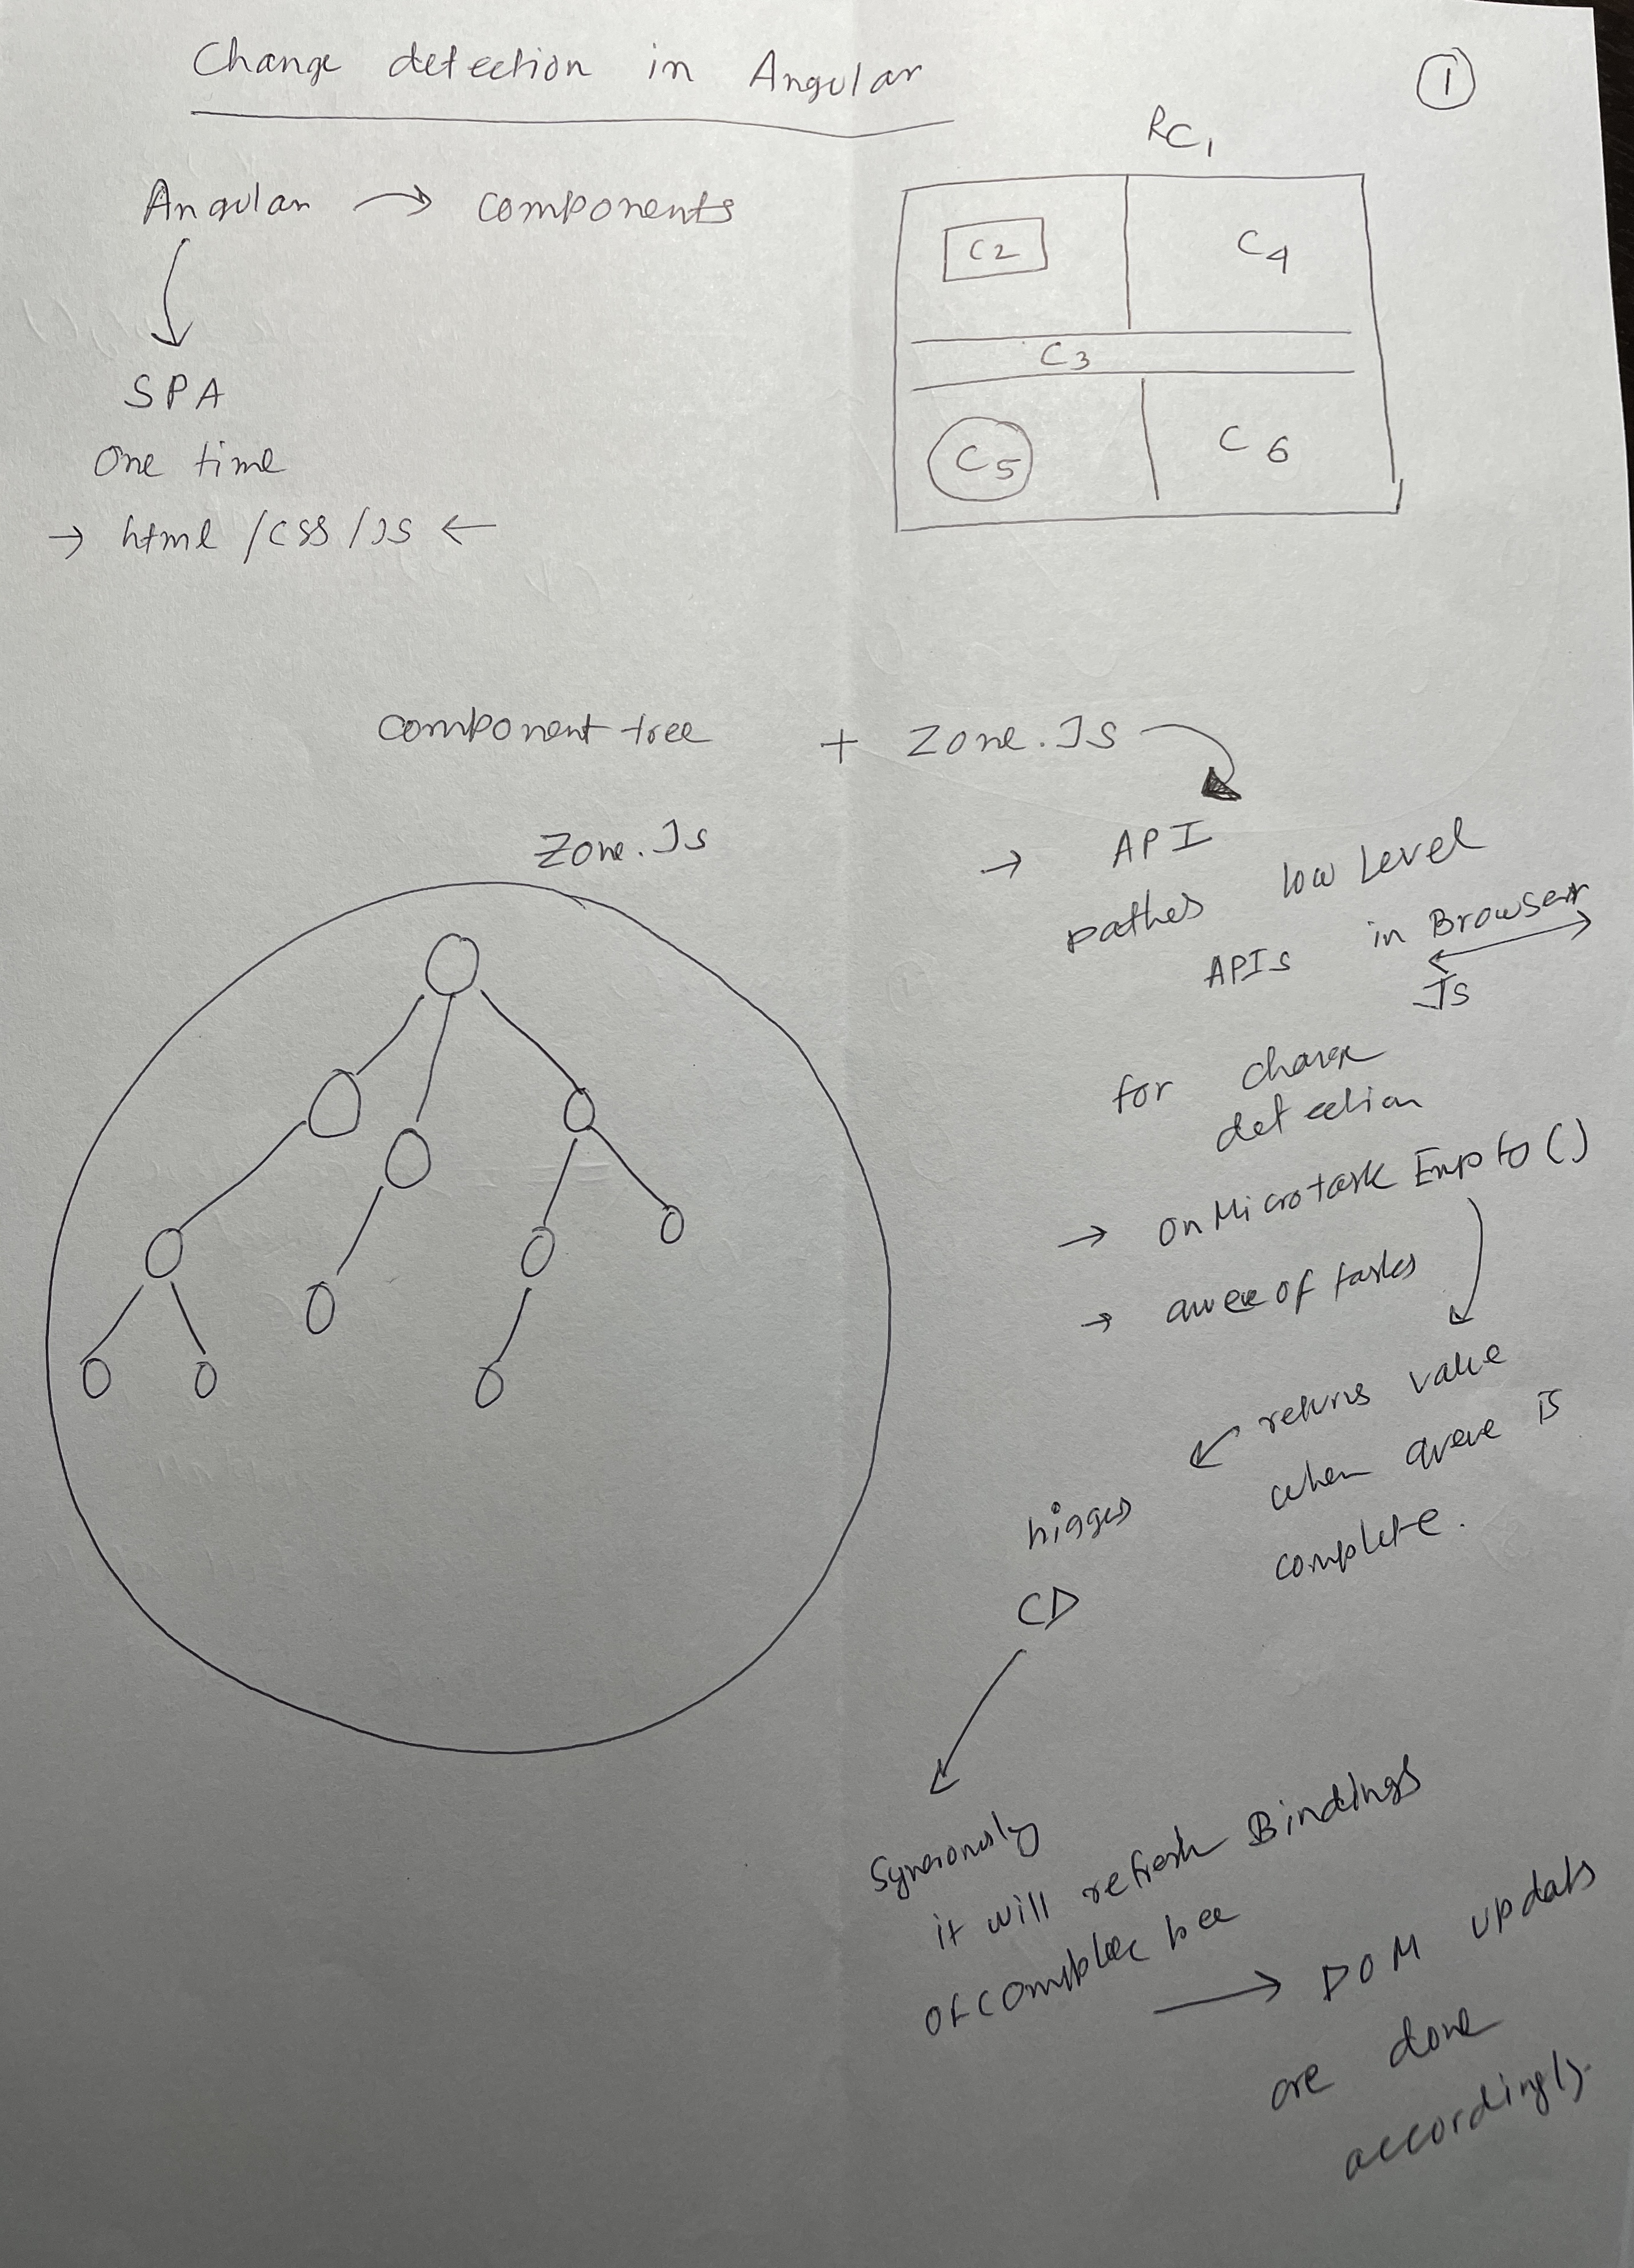 Change detection in Angular
1
Angular → components
SPA
One time
→ html / CSS / JS ←
RC1
C2
C4
C3
C5
C6
component tree + Zone.JS
Zone.Js
→ API
pathes low level
APIs in Browser
JS
for change
detection
→ onMicrotask Empto()
→ awere of tasks
returns value
when queue is
complete.
triggers
CD
Syncronously
it will refresh Bindings
of complete tree
→ DOM updats
are done
accordingly.